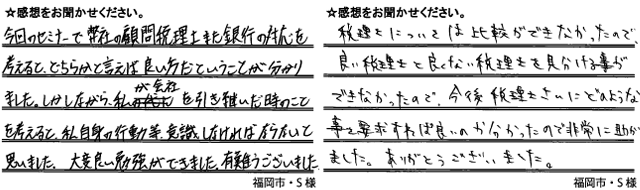 ☆感想をお聞かせください。
今回のセミナーで弊社の顧問税理士また銀行の対応を
考えると、どちらかと言えば良い方だということが分かり
ました。しかしながら、私が会社を引き継いだ時のこと
を考えると、私自身の行動等、意識しなければならないと
思いました。大変良い勉強ができました。有難うございました
福岡市・S 様
☆感想をお聞かせください。
税理士については比較ができなかったので、
良い税理士と良くない税理士を見分ける事が
できなかったので、今後税理士さんにどのような
事を要求すれば良いのか分かったので非常に助かり
ました。ありがとうございました。
福岡市・S 様